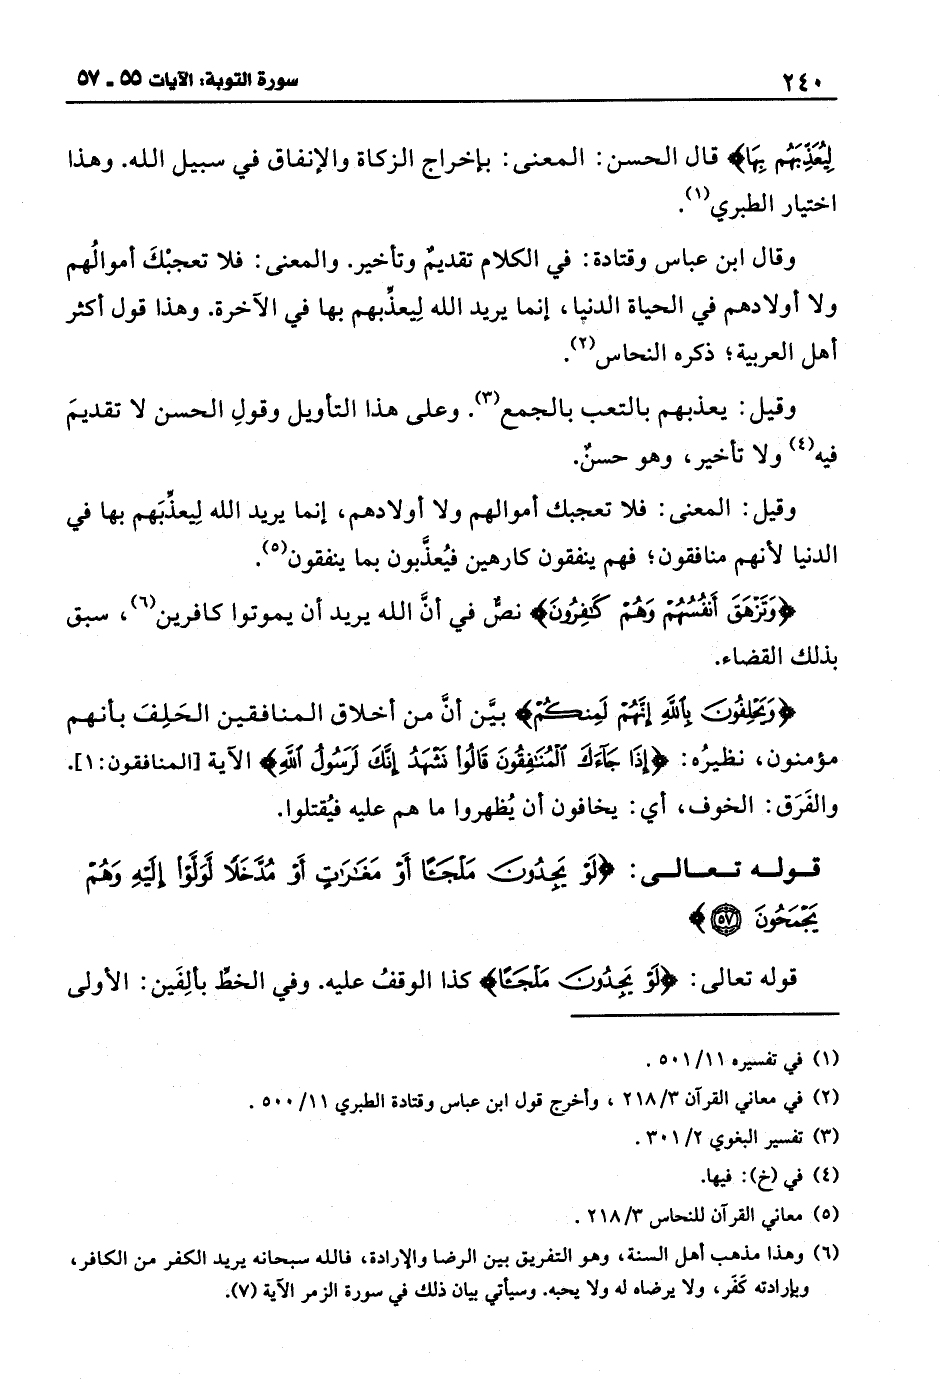 ٢٤٠ سورة التوبة: الآيات ٥٥ ـ ٥٧
لِيُعَذِّبَهُم بِهَا﴾ قال الحسن: المعنى: بإخراج الزكاة والإنفاق في سبيل الله. وهذا
اختيار الطبري(١).
وقال ابن عباس وقتادة: في الكلام تقديمٌ وتأخير. والمعنى: فلا تعجبْكَ أموالُهم
ولا أولادهم في الحياة الدنيا، إنما يريد الله لِيعذِّبهم بها في الآخرة. وهذا قول أكثر
أهل العربية؛ ذكره النحاس(٢).
وقيل: يعذبهم بالتعب بالجمع(٣). وعلى هذا التأويل وقولِ الحسن لا تقديمَ
فيه(٤) ولا تأخير، وهو حسنٌ.
وقيل: المعنى: فلا تعجبك أموالهم ولا أولادهم، إنما يريد الله لِيعذِّبَهم بها في
الدنيا لأنهم منافقون؛ فهم ينفقون كارهين فيُعذَّبون بما ينفقون(٥).
﴿وَتَزْهَقَ أَنفُسُهُمْ وَهُمْ كَٰفِرُونَ﴾ نصٌّ في أنَّ الله يريد أن يموتوا كافرين(٦)، سبق
بذلك القضاء.
﴿وَيَحْلِفُونَ بِٱللَّهِ إِنَّهُمْ لَمِنكُمْ﴾ بيَّن أنَّ من أخلاق المنافقين الحَلِفَ بأنهم
مؤمنون، نظيرُه: ﴿إِذَا جَآءَكَ ٱلْمُنَٰفِقُونَ قَالُوا۟ نَشْهَدُ إِنَّكَ لَرَسُولُ ٱللَّهِ﴾ الآية [المنافقون:١].
والفَرَق: الخوف، أي: يخافون أن يُظهروا ما هم عليه فيُقتلوا.
قوله تعالى: ﴿لَوْ يَجِدُونَ مَلْجَـًٔا أَوْ مَغَٰرَٰتٍ أَوْ مُدَّخَلًا لَّوَلَّوْا۟ إِلَيْهِ وَهُمْ
يَجْمَحُونَ ٥٧﴾
قوله تعالى: ﴿لَوْ يَجِدُونَ مَلْجَـًٔا﴾ كذا الوقفُ عليه. وفي الخطِّ بألِفَين: الأولى
(١) في تفسيره ١١/ ٥٠١ .
(٢) في معاني القرآن ٣/ ٢١٨ ، وأخرج قول ابن عباس وقتادة الطبري ١١/ ٥٠٠ .
(٣) تفسير البغوي ٢/ ٣٠١ .
(٤) في (خ): فيها.
(٥) معاني القرآن للنحاس ٣/ ٢١٨ .
(٦) وهذا مذهب أهل السنة، وهو التفريق بين الرضا والإرادة، فالله سبحانه يريد الكفر من الكافر،
وبإرادته كَفَر، ولا يرضاه له ولا يحبه. وسيأتي بيان ذلك في سورة الزمر الآية (٧).